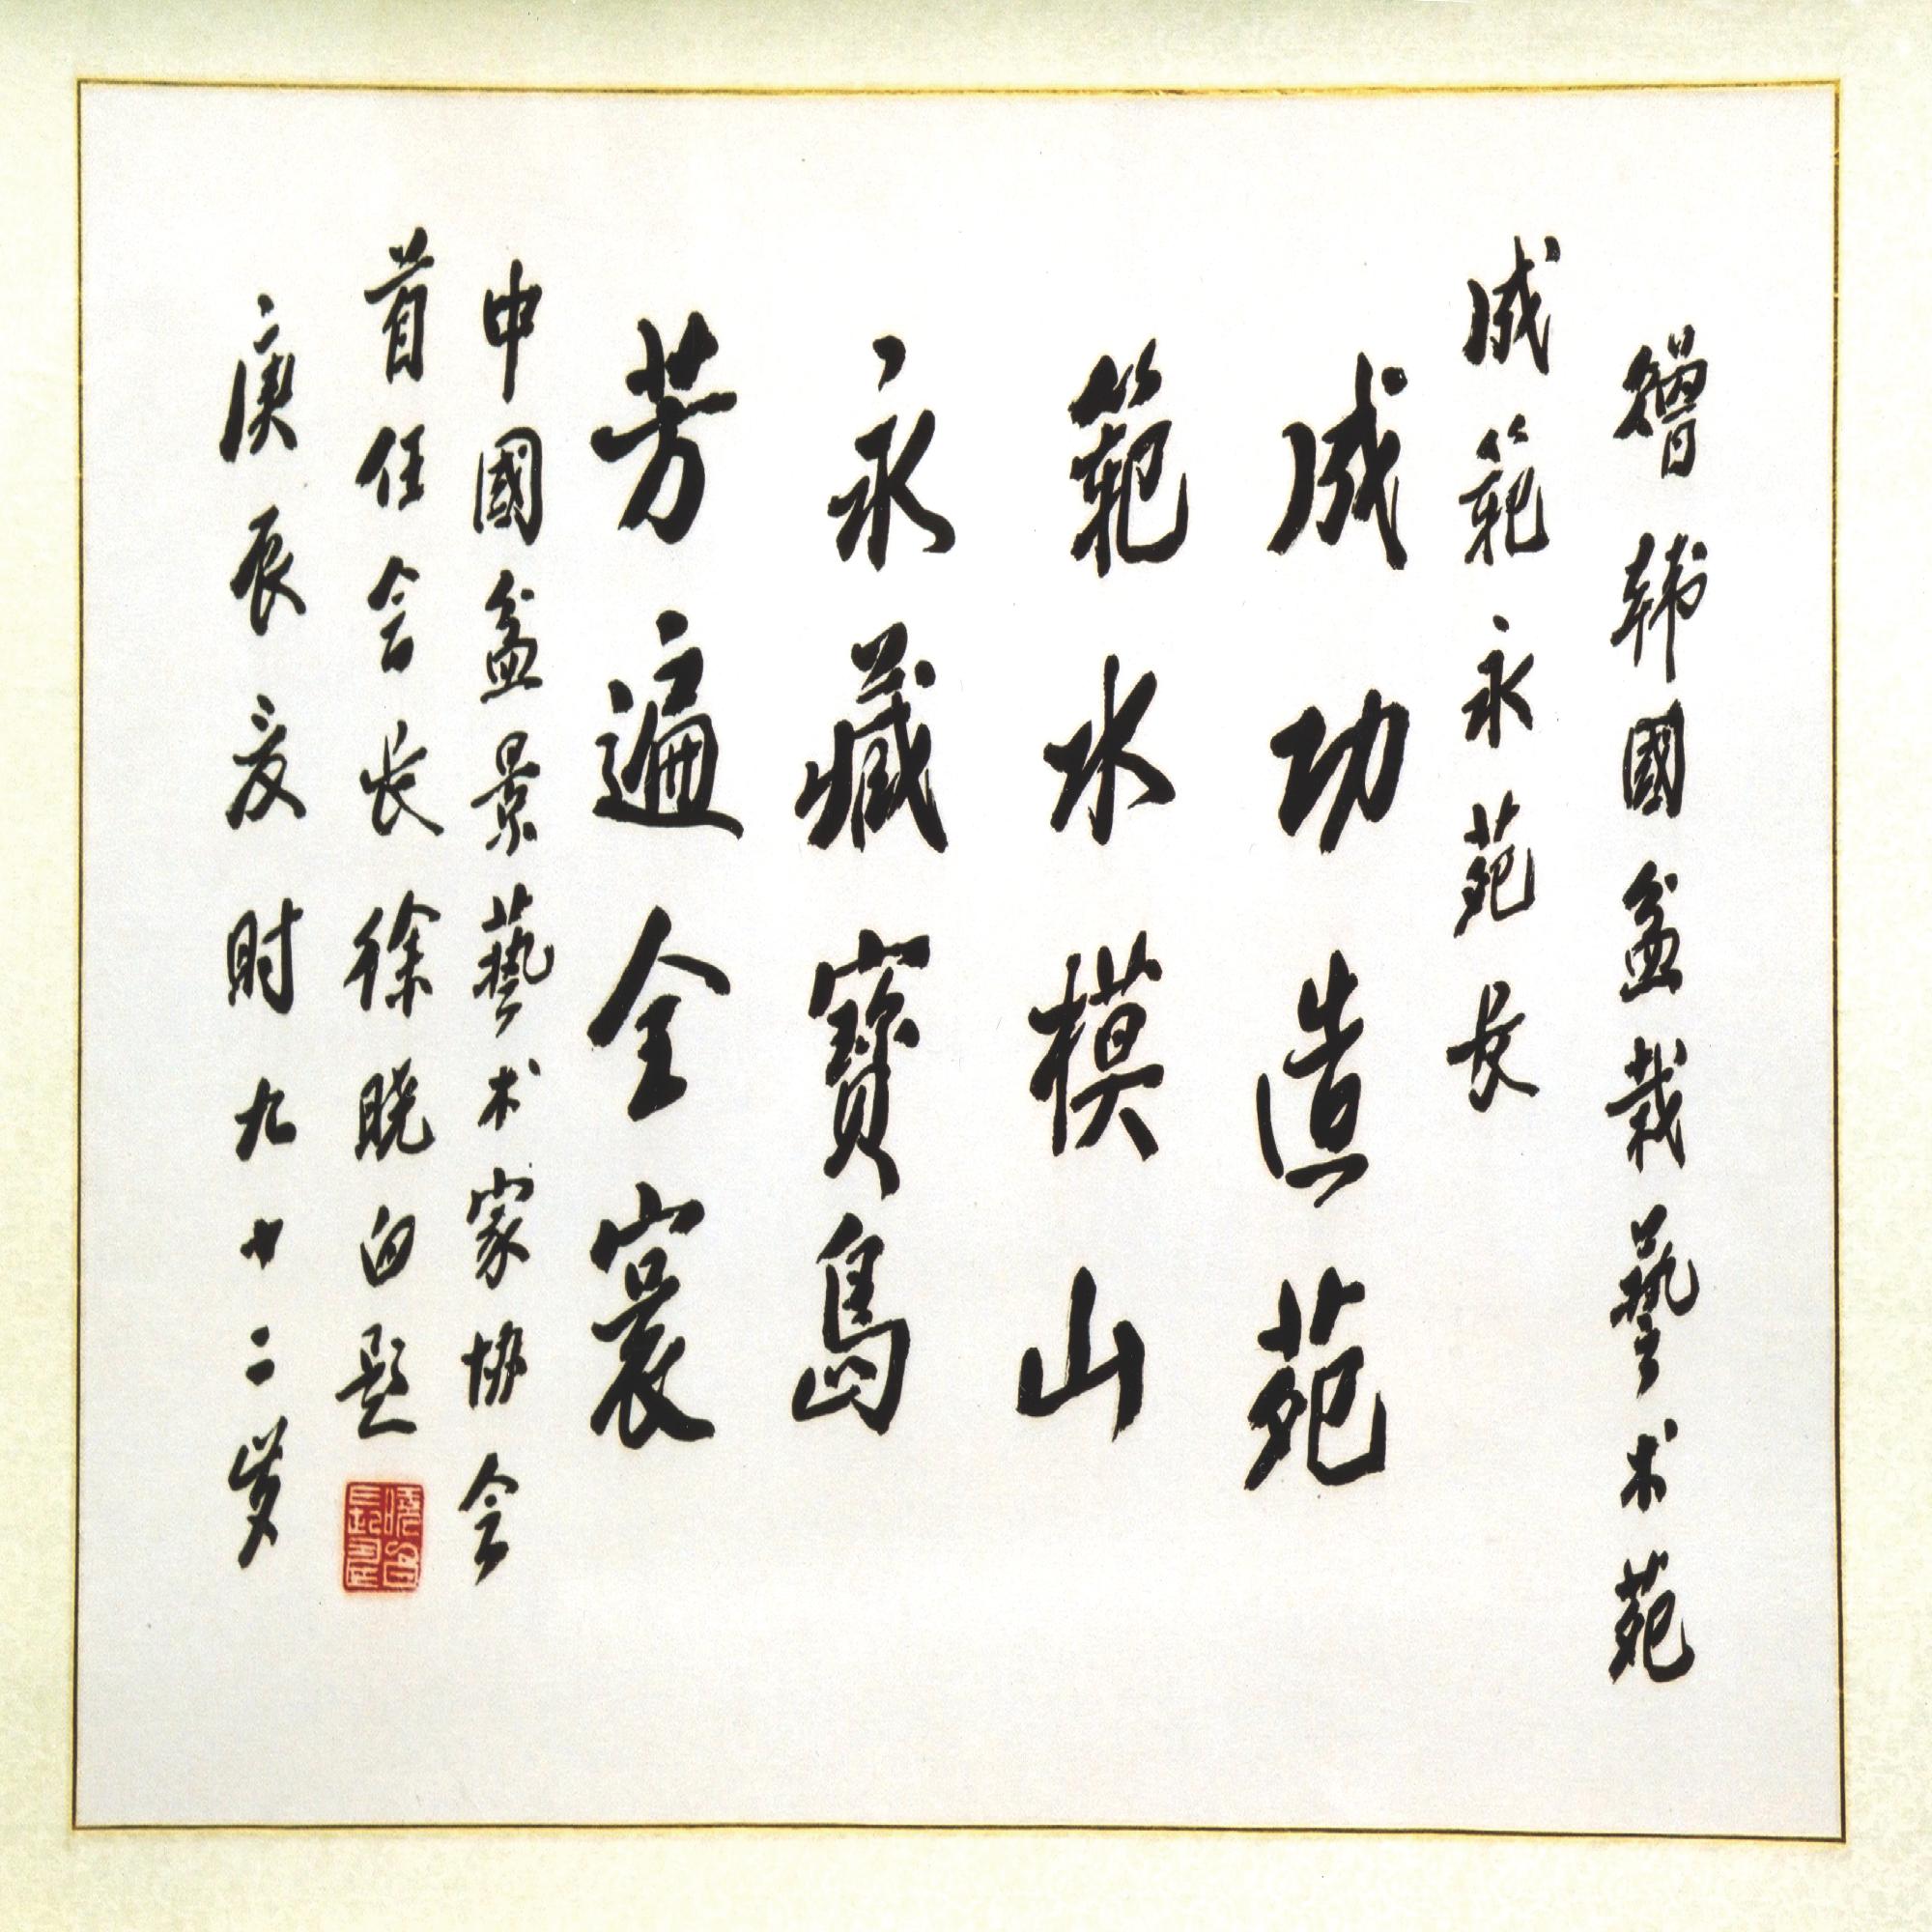 贈韩國盆栽藝术苑
成範永苑长
成功造苑
範水模山
永藏寳島
芳遍全寰
中國盆景藝术家协会
首任会长徐晓白题
庚辰夏时九十二岁